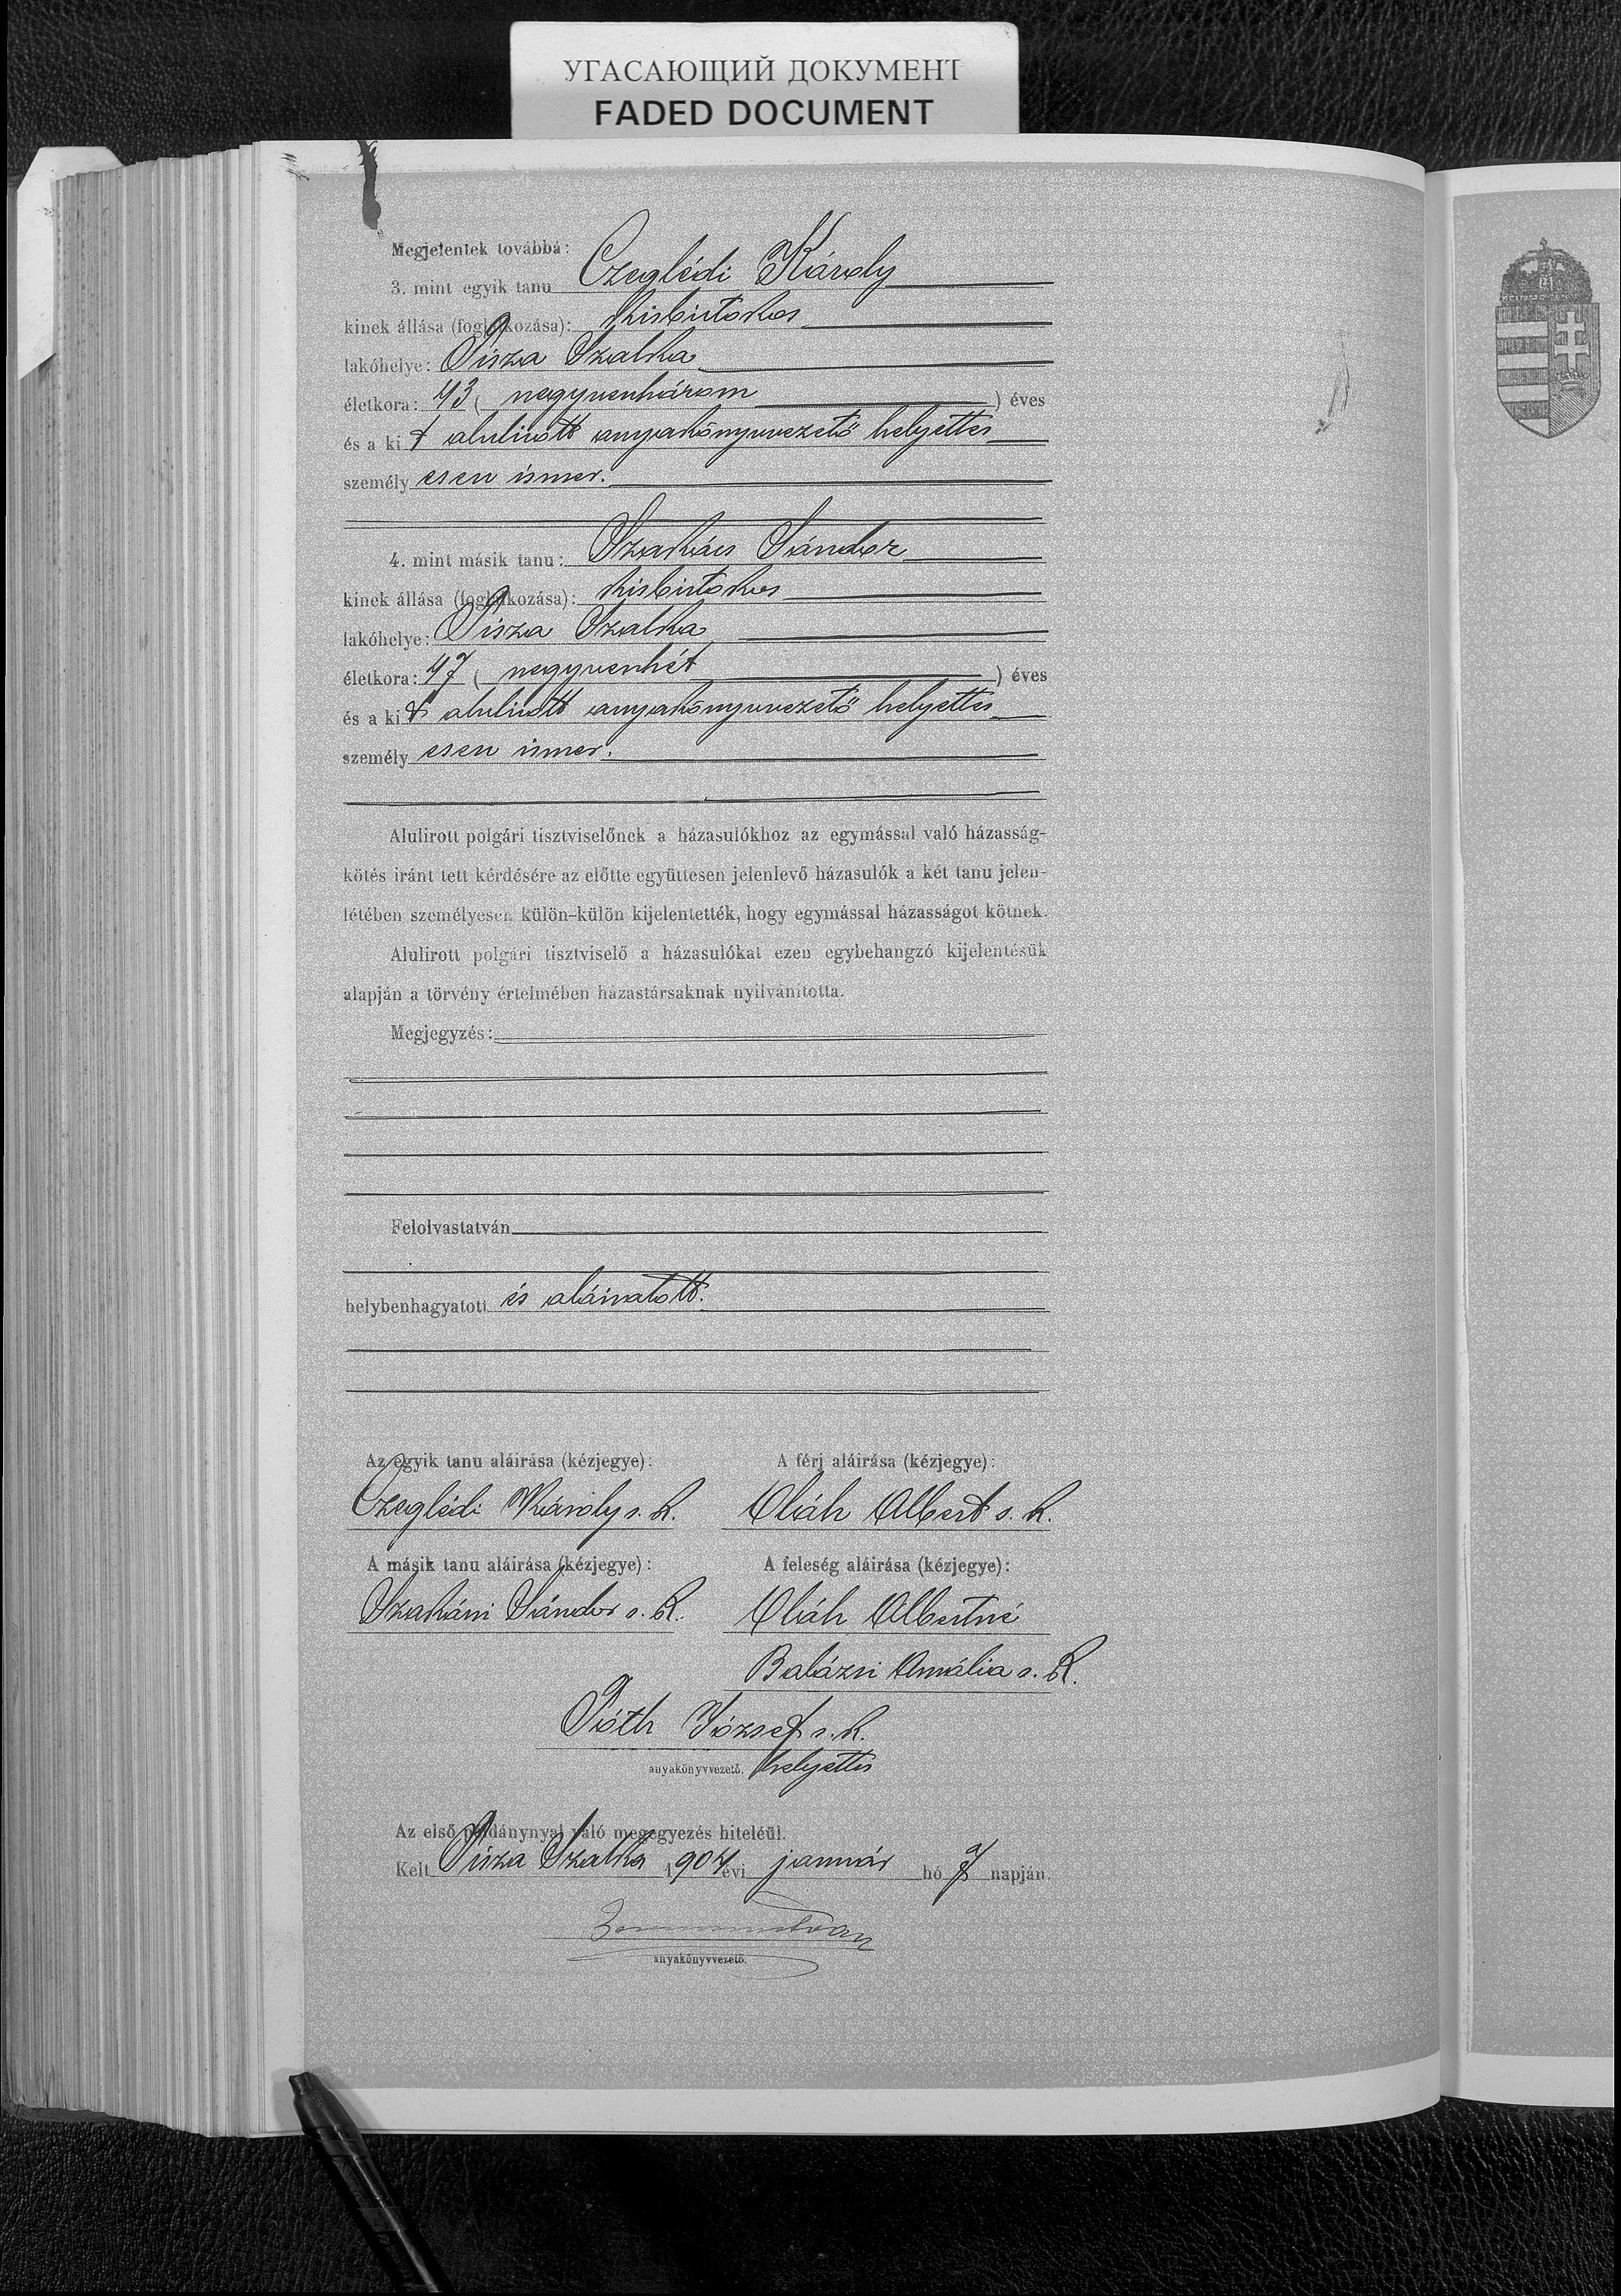 УГАСАЮЩИЙ ДОКУМЕНТ
FADED DOCUMENT
Megjelentek továbbá:
3. mint egyik tanu Czeglédi Károly
kinek állása (foglalkozása): kisbirtokos
lakóhelye: Tisza Szalka
életkora: 43 ( negyvenhárom ) éves
és a ki t alulirott anyakönyvvezető helyettes
személy esen ismer.
4. mint másik tanu: Szakács Sándor
kinek állása (foglalkozása): kisbirtokos
lakóhelye: Tisza Szalka
életkora: 47 ( negyvenhét ) éves
és a ki t alulirott anyakönyvvezető helyettes
személy esen ismer.
Alulirott polgári tisztviselőnek a házasulókhoz az egymással való házasság-
kötés iránt tett kérdésére az előtte együttesen jelenlevő házasulók a két tanu jelen-
létében személyesen külön-külön kijelentették, hogy egymással házasságot kötnek.
Alulirott polgári tisztviselő a házasulókat ezen egybehangzó kijelentésük
alapján a törvény értelmében házastársaknak nyilvánította.
Megjegyzés:
Felolvastatván
helybenhagyatott és aláiratott.
Az egyik tanu aláirása (kézjegye): A férj aláirása (kézjegye):
Czeglédi Károly s. k. Oláh Albert s. k.
A másik tanu aláirása (kézjegye): A feleség aláirása (kézjegye):
Szakács Sándor s. k. Oláh Albertné
Balázsi Amália s. k.
Tóth József s. k.
anyakönyvvezető. helyettes
Az első példánynyal való megegyezés hiteléül.
Kelt Tisza Szalka 1904 évi január hó 7 napján.
anyakönyvvezető.